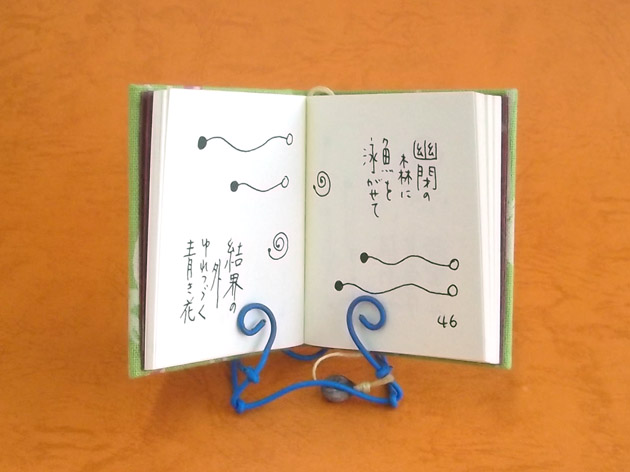 幽閉の
森に
魚を
泳がせて
46
結界の
外
ゆれつづく
青き花